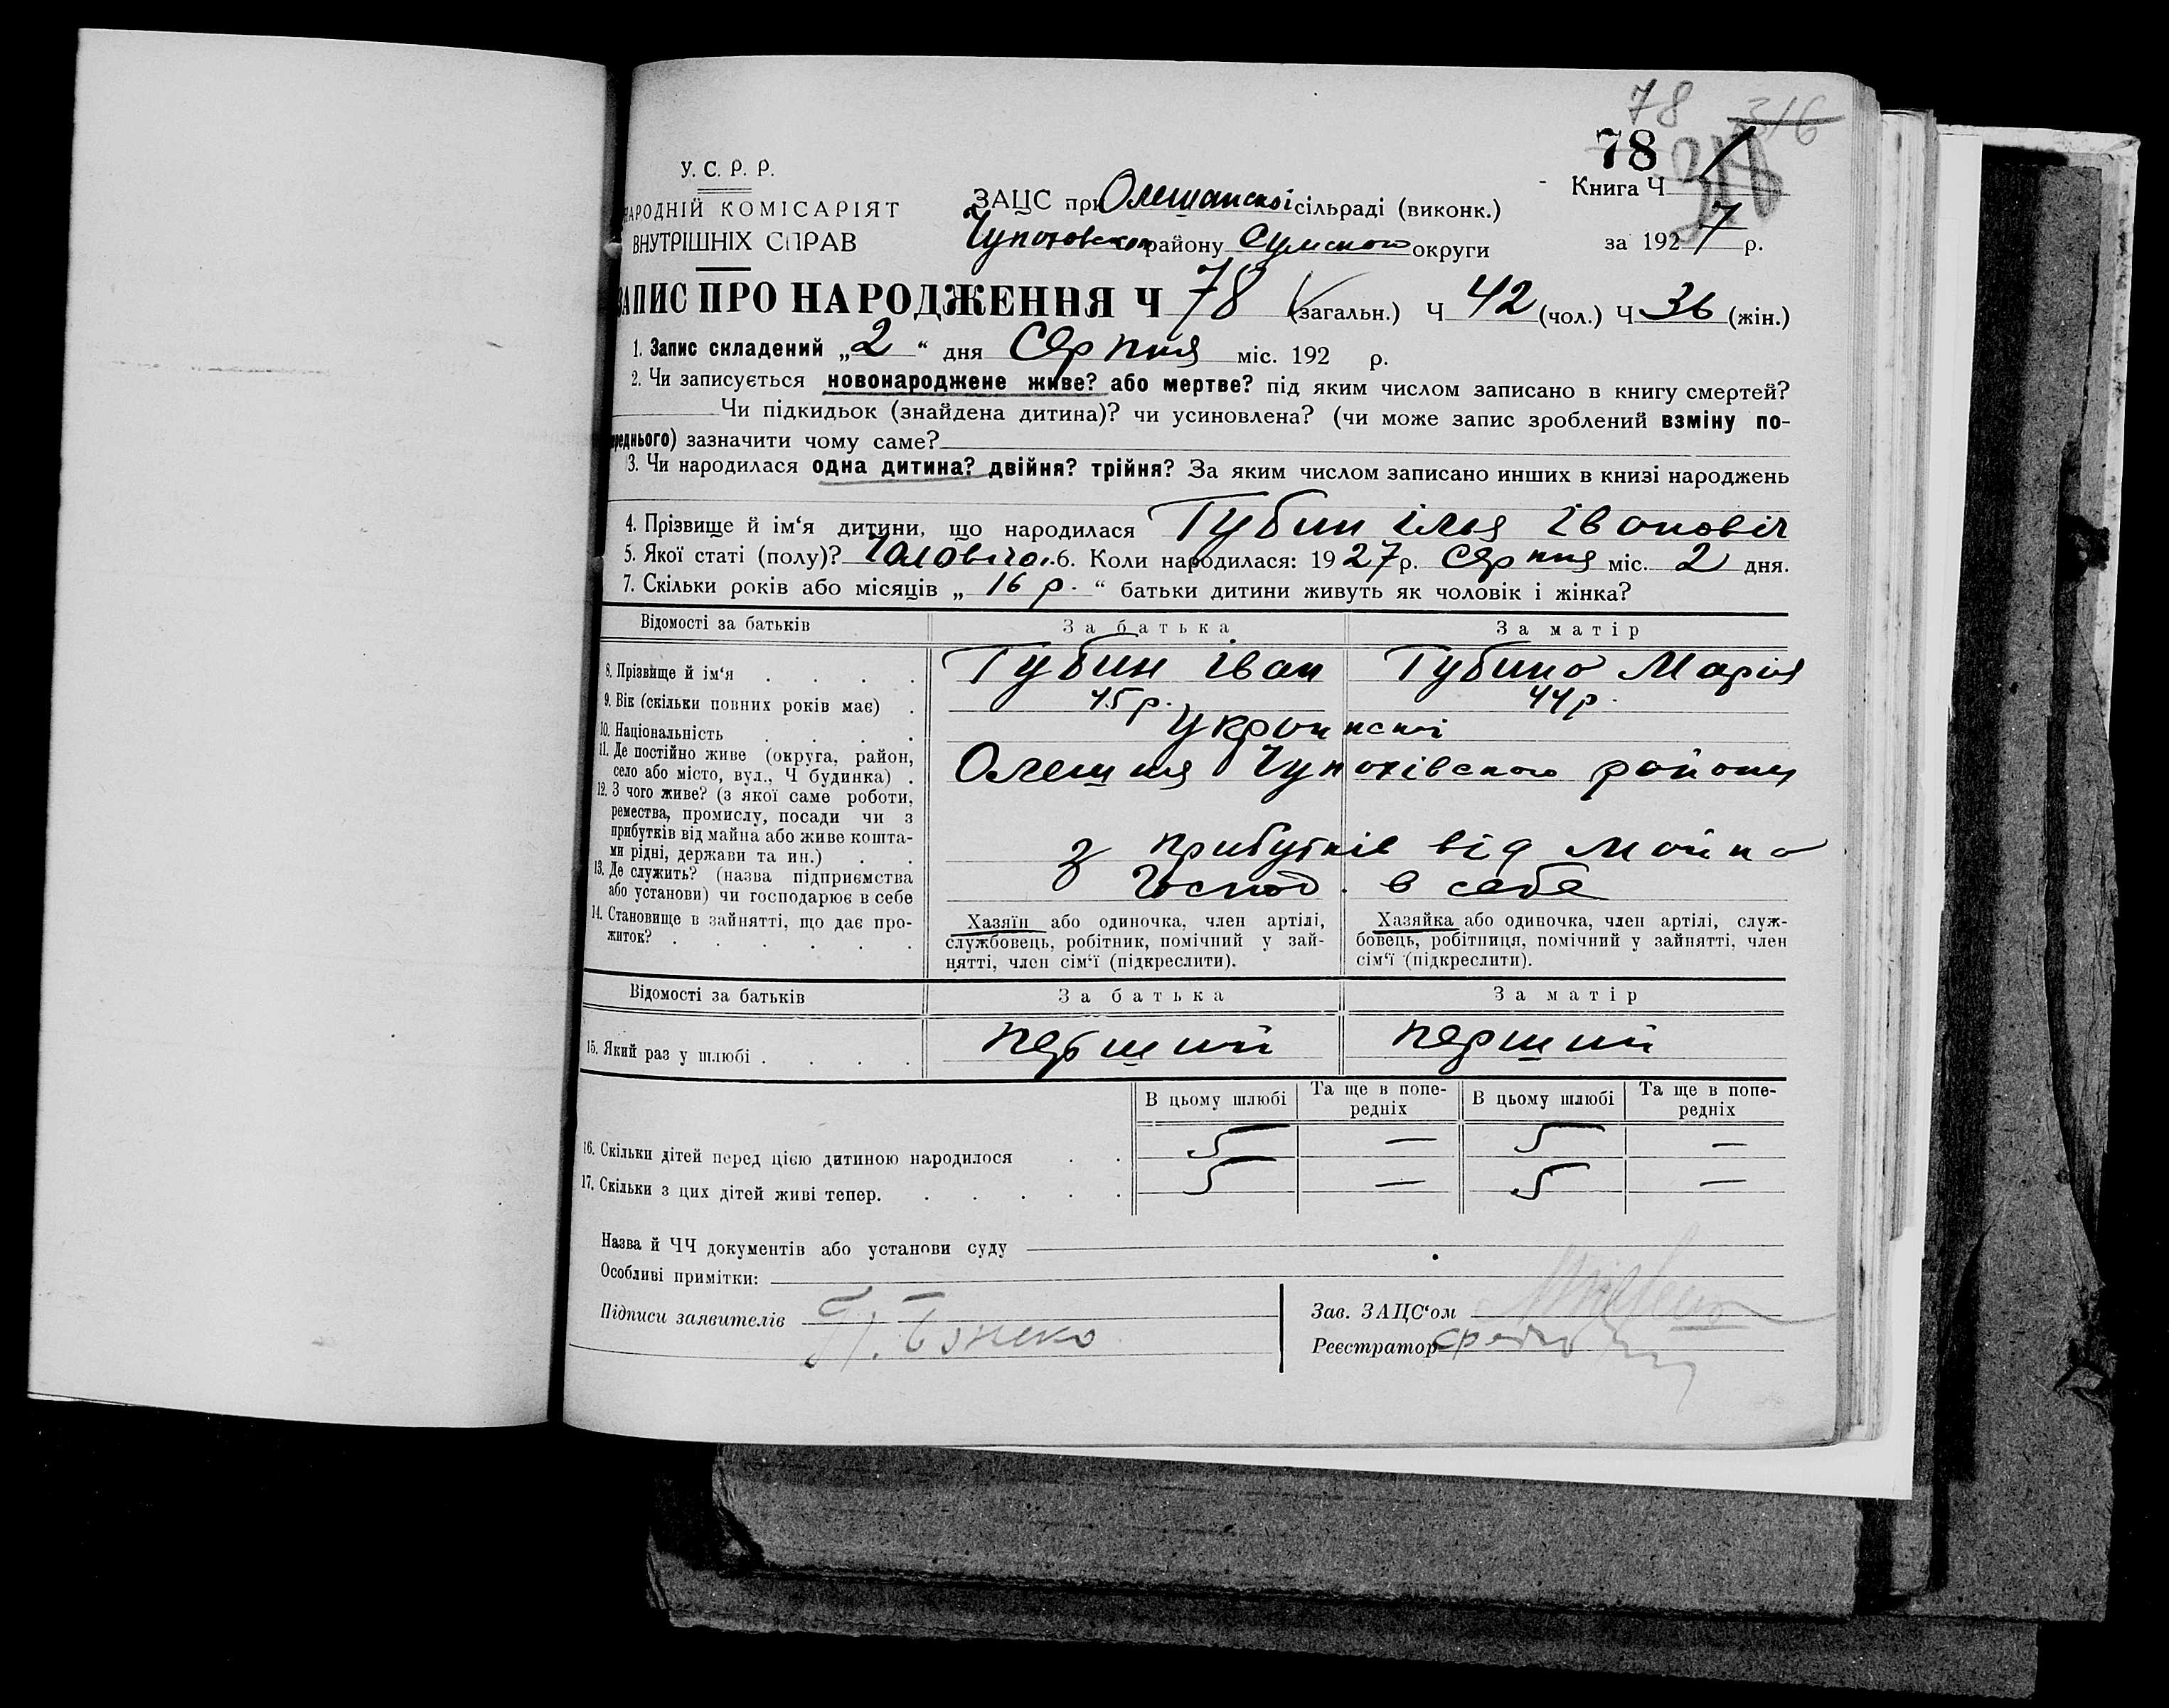 78 316
78 318
У. С. Р. Р.
НАРОДНІЙ КОМІСАРІЯТ
ВНУТРІШНІХ СПРАВ
ЗАЦС при Олешанской сільраді (виконк.)
Чупоховского району Сумского округи
Книга Ч
за 1927 р.
ЗАПИС ПРО НАРОДЖЕННЯ Ч 78 (загальн.) Ч 42 (чол.) Ч 36 (жін.)
1. Запис складений „2“ дня Серпня міс. 192 р.
2. Чи записується новонароджене живе? або мертве? під яким числом записано в книгу смертей?
Чи підкидьок (знайдена дитина)? чи усиновлена? (чи може запис зроблений взміну по-
реднього) зазначити чому саме?
3. Чи народилася одна дитина? двійня? трійня? За яким числом записано инших в книзі народжень
4. Прізвище й ім‘я дитини, що народилася Губин ілья івановіч
5. Якої статі (полу)? Чоловіча. 6. Коли народилася: 1927р. Серпня міс. 2 дня.
7. Скільки років або місяців „16 р.“ батьки дитини живуть як чоловік і жінка?
Відомості за батьків За батька За матір
8. Прізвище й ім‘я . . . . Губин іван Губина Марія
9. Вік (скільки повних років має) . 45 р. 44 р.
10. Національність . . . . украинскі
11. Де постійно живе (округа, район,
село або місто, вул., Ч будинка) . Олешня Чупохівского району
12. З чого живе? (з якої саме роботи,
ремества, промислу, посади чи з
прибутків від майна або живе кошта-
ми рідні, держави та ин.) . . з прибутків від майна
13. Де служить? (назва підприємства
або установи) чи господарює в себе Господ. в себе
14. Становище в зайнятті, що дає про-
житок? . . . . . .
Хазяїн або одиночка, член артілі,
службовець, робітник, помічний у зай-
нятті, член сім‘ї (підкреслити).
Хазяйка або одиночка, член артілі, служ-
бовець, робітниця, помічний у зайнятті, член
сім‘ї (підкреслити).
Відомості за батьків За батька За матір
15. Який раз у шлюбі . . . . перший перший
В цьому шлюбі Та ще в попе-
редніх В цьому шлюбі Та ще в попе-
редніх
16. Скільки дітей перед цією дитиною народилося . . 5 — 5 —
17. Скільки з цих дітей живі тепер. . . . . . 5 — 5 —
Назва й ЧЧ документів або установи суду
Особливі примітки:
Підписи заявителів
Зав. ЗАЦС‘ом
Реєстратор